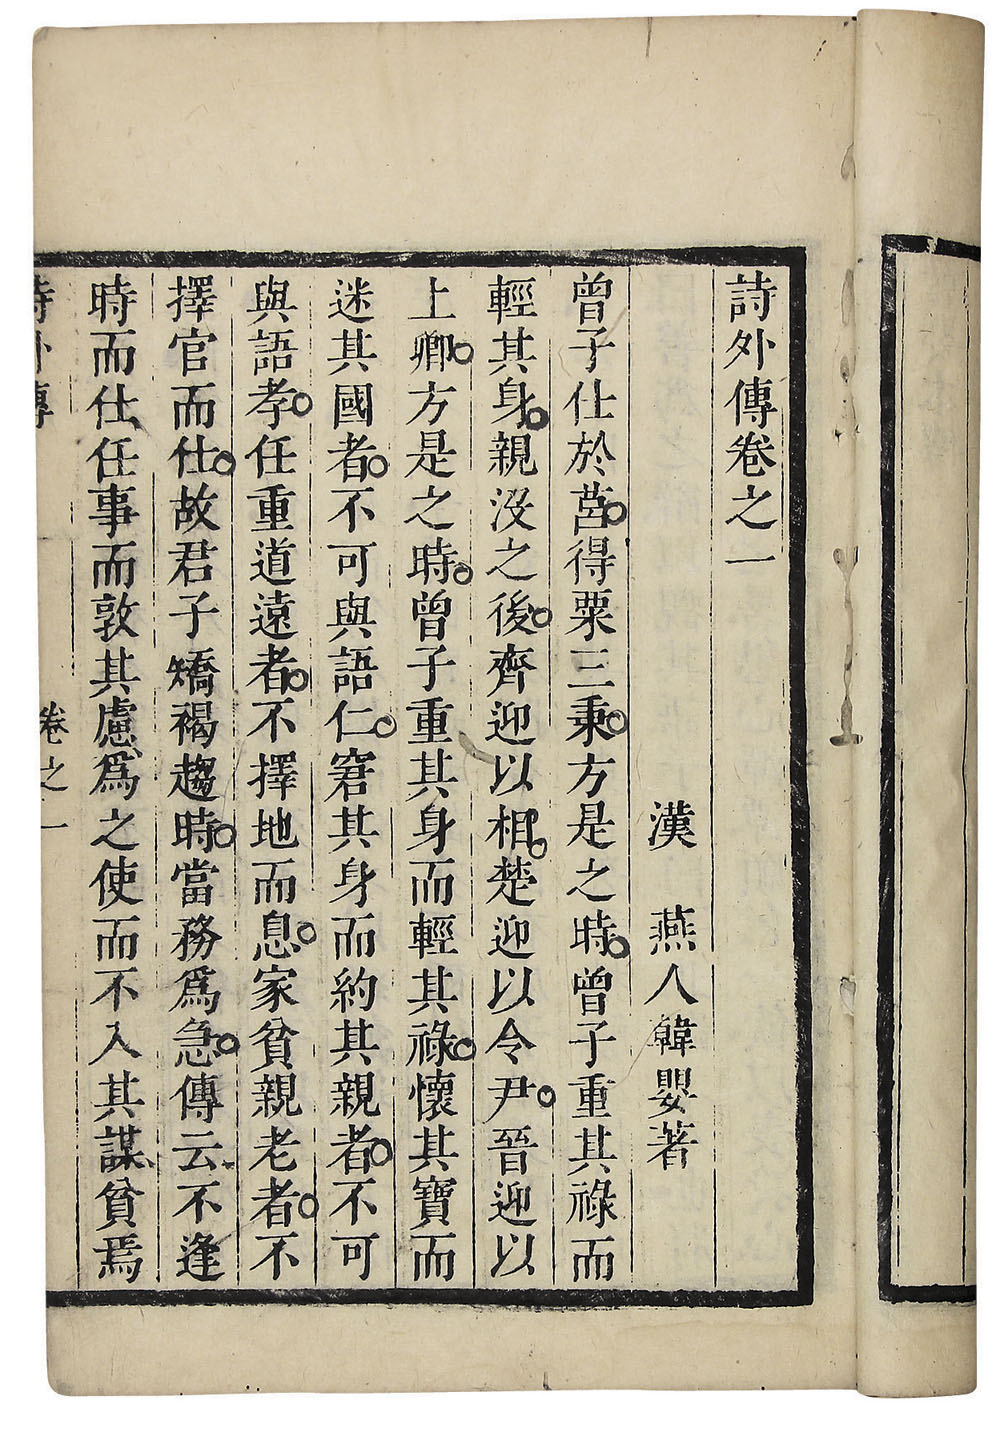 詩外傳卷之一
漢 燕人韓嬰著
曾子仕於莒得粟三秉方是之時曾子重其祿而
輕其身親沒之後齊迎以相楚迎以令尹晉迎以
上卿方是之時曾子重其身而輕其祿懷其寶而
迷其國者不可與語仁窘其身而約其親者不可
與語孝任重道遠者不擇地而息家貧親老者不
擇官而仕故君子矯褐趨時當務爲急傳云不逢
時而仕任事而敦其慮爲之使而不入其謀貧焉
詩外傳 卷之一